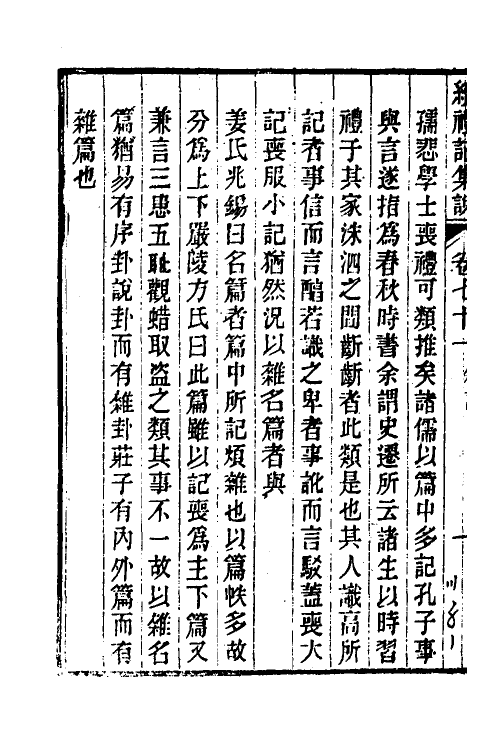 續禮記集說　卷七十一　雜記
孺悲學士喪禮可類推矣諸儒以篇中多記孔子事
與言遂指爲春秋時書余謂史遷所云諸生以時習
禮于其家洙泗之間齗齗者此類是也其人識高所
記者事信而言醕若識之卑者事訛而言駁蓋喪大
記喪服小記猶然況以雜名篇者與
姜氏兆錫曰名篇者篇中所記煩雜也以篇帙多故
分爲上下嚴陵方氏曰此篇雖以記喪爲主下篇又
兼言三患五恥觀蜡取盜之類其事不一故以雜名
篇猶易有序卦說卦而有雜卦莊子有內外篇而有
雜篇也